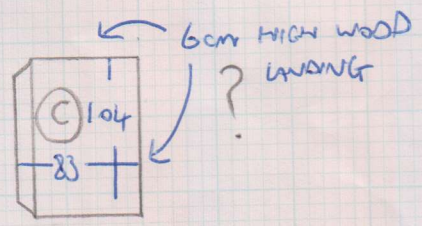 6cm HIGH WOOD
LANDING
?
C 104
83